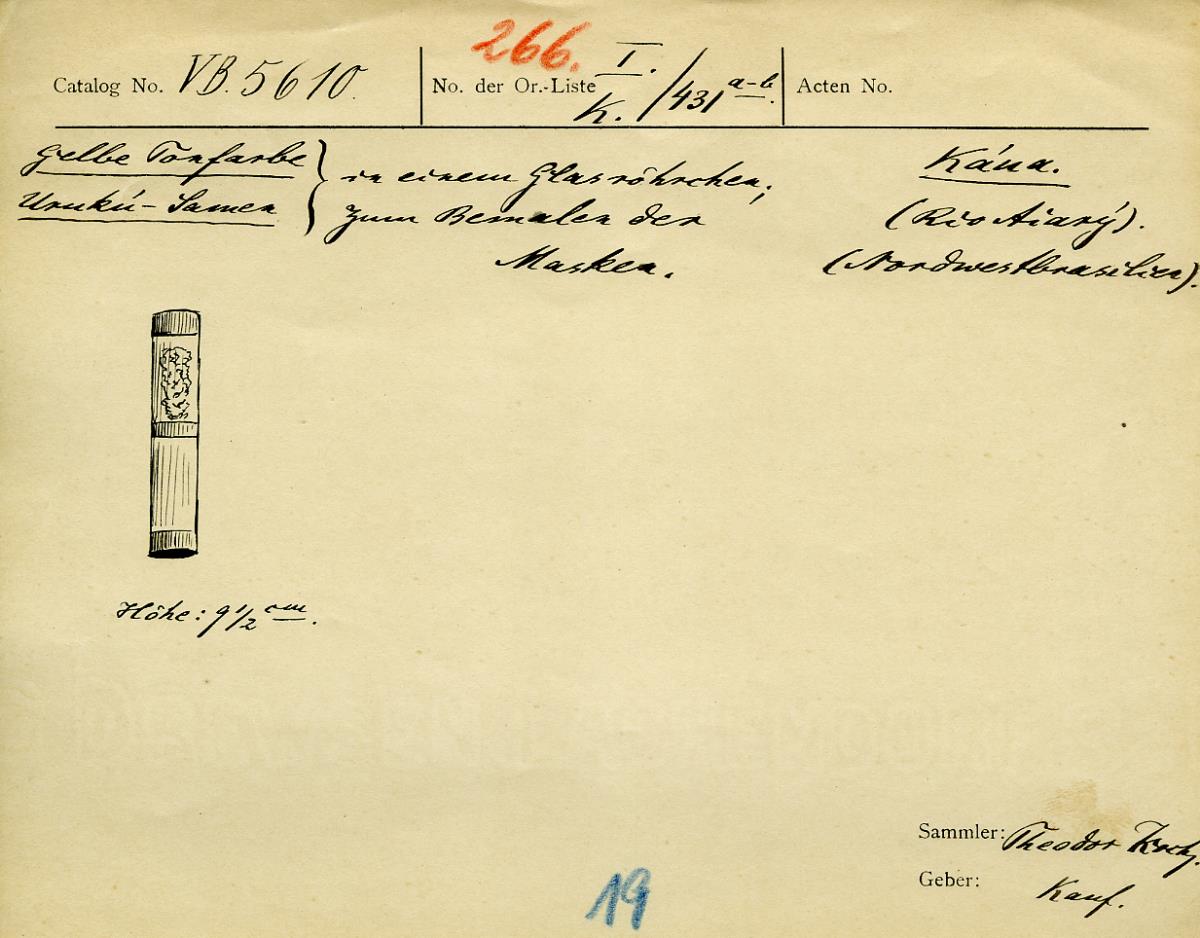 266.
Catalog No. VB. 5610. No. der Or.-Liste I. K. /431 a-b. Acten No.
Gelbe Tonfarbe } in einem Glasröhrchen; Káua.
Urukú-Samen } zum Bemalen der (Rio Aiarý).
Masken. (Nordwestbrasilien).
Höhe: 9 1/2 cm.
Sammler: Theodor Koch.
Geber: Kauf.
19